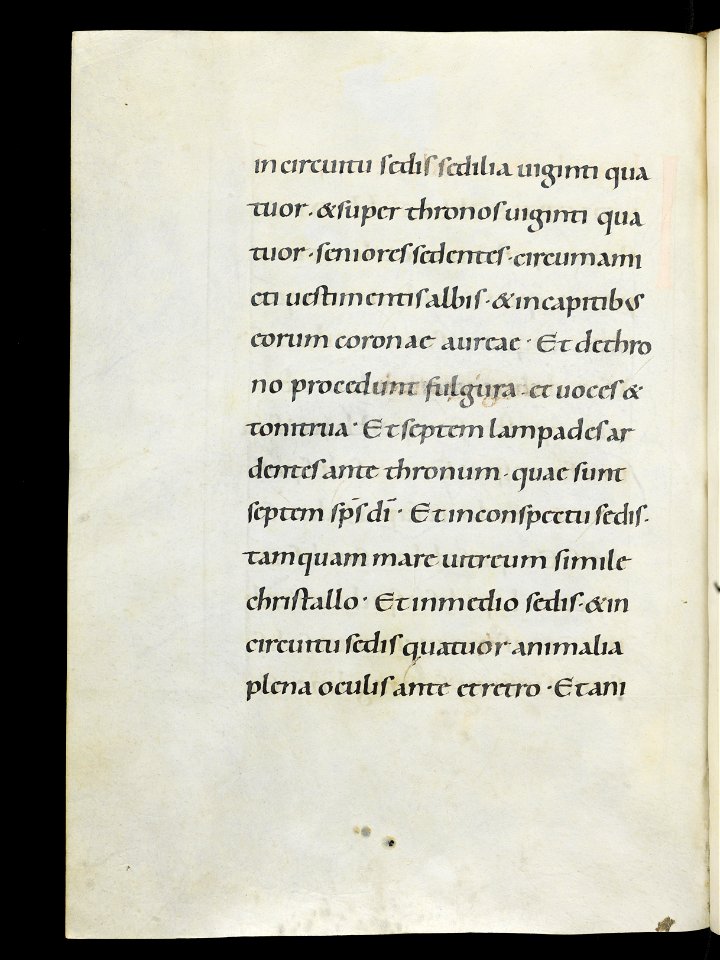 in circuitu sedis sedilia uiginti qua
tuor · & super thronos uiginti qua
tuor · seniores sedentes · circumami
cti uestimentis albis · & in capitibus
eorum coronae aureae · Et de thro
no procedunt fulgura · et uoces &
tonitrua · Et septem lampades ar
dentes ante thronum · quae sunt
septem sp̄s dī · Et in conspectu sedis ·
tamquam mare uitreum simile
christallo · Et in medio sedis · & in
circuitu sedis quatuor animalia
plena oculis ante et retro · Et ani